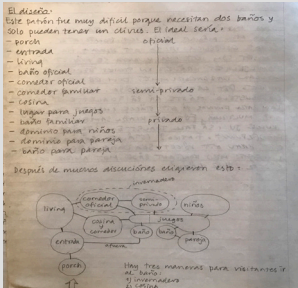 El diseño.
Este patrón fue muy difícil porque necesitan dos baños y
solo pueden tener un clivus. El ideal sería:
- porch
oficial
- entrada
- living
- baño oficial
- comedor oficial
- comedor familiar
semi-privado
- cosina
- lugar para juegos
- baño familiar
privado
- dominio para niños
- dominio para pareja
- baño para pareja
Después de muchas discusiones eligieron esto:
invernadero
living
comedor
oficial
semi-
privado
niños
cosina
y
comedor
juegos
baño
baño
pareja
entrada
afuera
porch
Hay tres maneras para visitantes ir
al baño:
invernadero
cosina